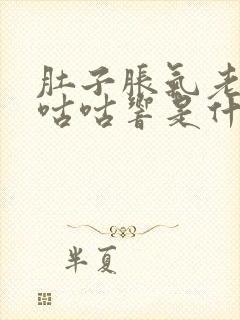 肚子胀气老
咕咕响是什
半夏